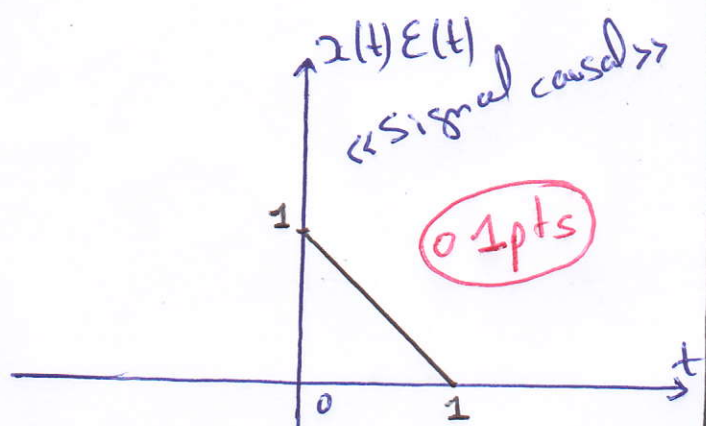 x(t) ε(t)
<<signal causal>>
1
01pts
t
0
1